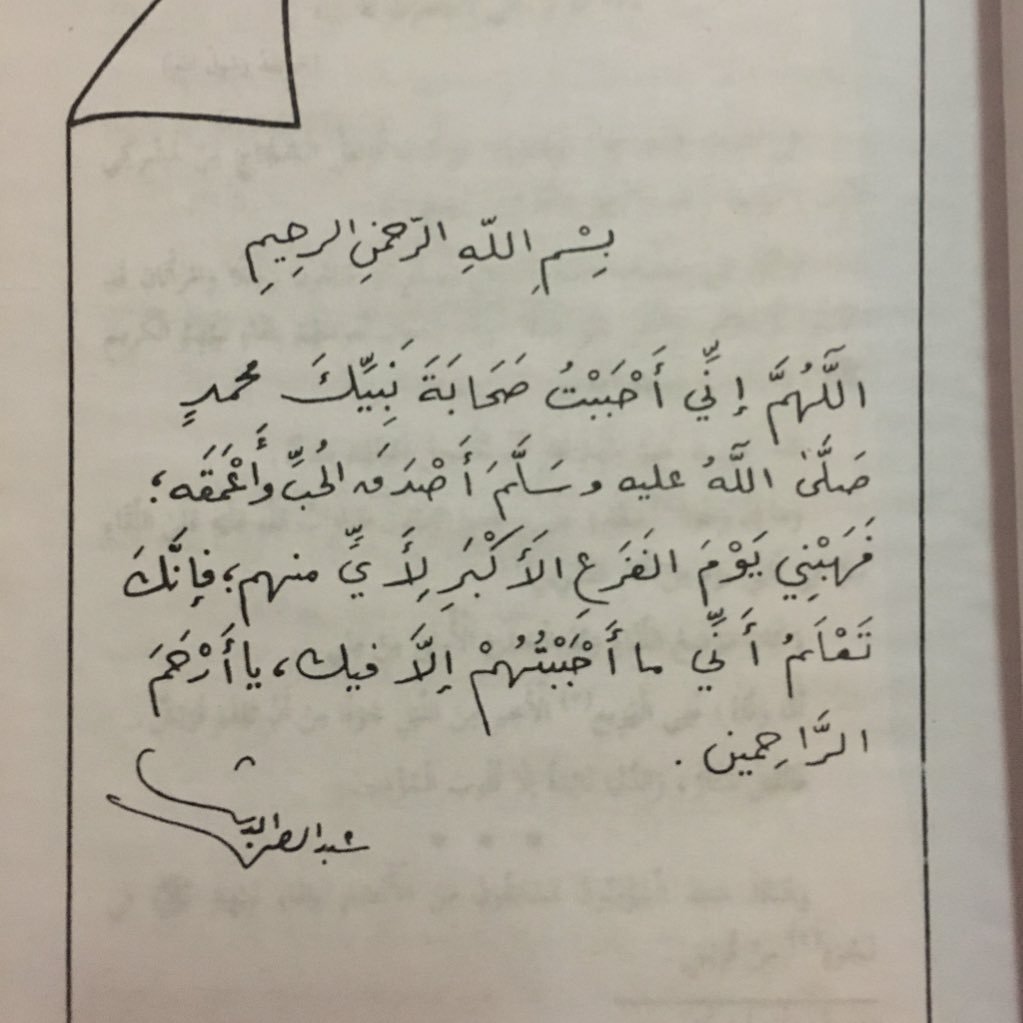 بِسْمِ اللّهِ الرّحمٰنِ الرحِيمِ
اللَّهُمَّ إنِّي أَحْبَبْتُ صَحَابَةَ نَبِيِّكَ محمدٍ
صَلَّىٰ اللَّهُ عليه وسَلَّمَ أَصْدَقَ الحُبِّ وأَعْمَقَه؛
فَهَبْنِي يَوْمَ الفَزَعِ الأَكْبَرِ لِأَيٍّ منهم؛ فإنَّكَ
تَعْلَمُ أَنِّي ما أَحْبَبْتُهُمْ إلاَّ فيك، يا أَرْحَمَ
الرَّاحِمين.